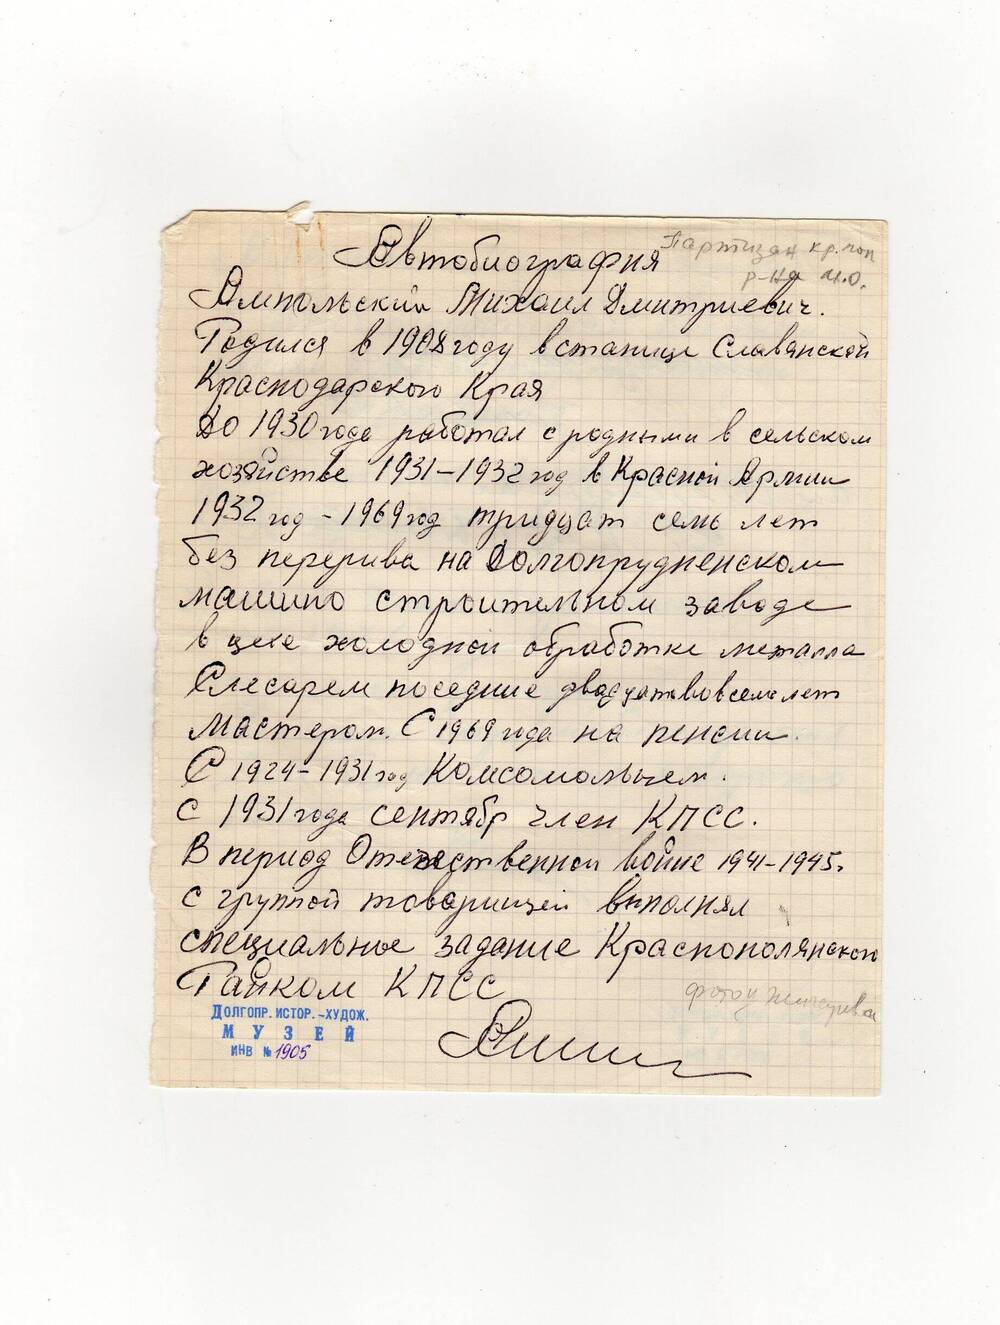 Автобиография
Партизан кр. пол
р-на М.О.
Ампольский Михаил Дмитриевич.
Родился в 1908 году в станице Славянской
Краснодарского Края
До 1930 года работал с родными в сельском
хозяйстве 1931-1932 год в Красной Армии
1932 год - 1969 год тридцат семь лет
без перерива на Долгопрудненском
машино строительном заводе
в цехе холодной обработке металла
Слесарем поседние двадцатвовсемлет
Мастером. С 1969 года на пенсии.
С 1924-1931 год Комсомольцем.
С 1931 года сентябр член КПСС.
В период Отечественной войне 1941-1945г
с группой товарищей выполнял
специальное задание Краснополянского
Райком КПСС
фото у
ДОЛГОПР. ИСТОР.-ХУДОЖ.
МУЗЕЙ
ИНВ № 1905